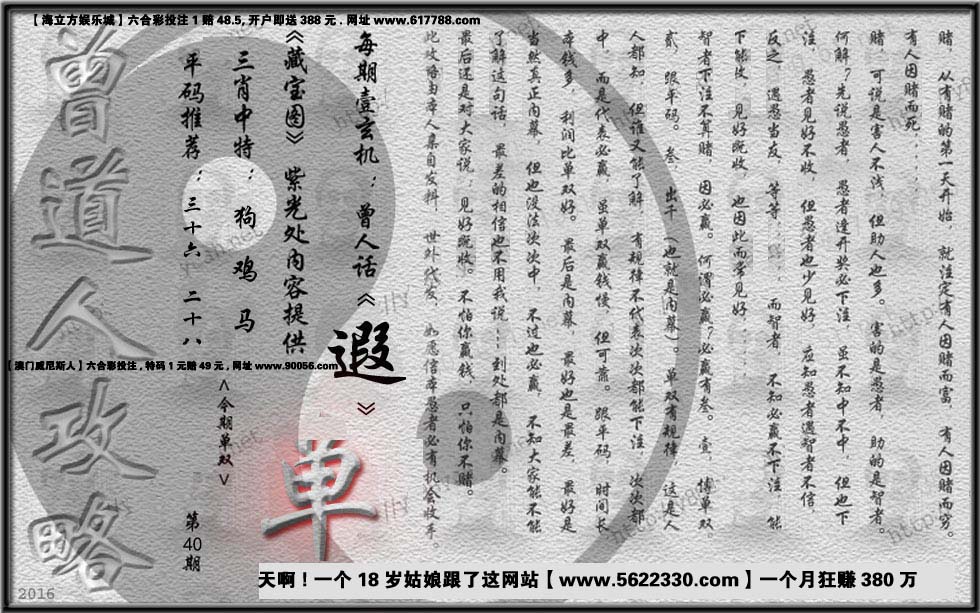 【海立方娱乐城】六合彩投注1赔48.5,开户即送388元.网址www.617788.com
赌，从有赌的第一天开始，就注定有人因赌而富，有人因赌而穷。
有人因赌而死，．．．．．
赌，可说是害人不浅，但助人也多。害的是愚者，助的是智者。
何解？先说愚者，愚者逢开奖必下注，虽不知中不中，但也下
注，愚者见好不收，但愚者也少见好，应知愚者遇智者不信，
反之，遇愚当友，等等．．．．．而智者，不知必赢不下注，能
下能收，见好既收，也因此而常见好．．．．
智者下注不算赌，因必赢。何谓必赢？必赢有叁。壹，博单双，
贰，跟平码。叁，出千（也就是内幕）。单双有规律，这是人
人都知，但谁又能了解，有规律不代表次次都能下注，次次都
中，而是代表必赢，虽单双赢钱慢，但可靠。跟平码，时间长，
本钱多，利润比单双好。最后是内幕，最好也是最差，最好是
当然真正内幕，但也没法次次中，不过也必赢，不知大家能不能
了解这句话，最差的相信也不用我说．．．到处都是内幕。
最后还是对大家说：见好既收。不怕你赢钱，只怕你不赌。
此攻略由本人亲自发料，世外代发，如愿信本愚者必有机会收手。
每期壹玄机：曾人话《遐》
《藏宝图》紫光处内容提供
三肖中特：狗鸡马
平码推荐：三十六 二十八
＜今期单双＞
单
第40期
曾道人攻略
【澳门威尼斯人】六合彩投注,特码1元赔49元,网址www.90056.com
天啊！一个18岁姑娘跟了这网站【www.5622330.com】一个月狂赚380万
2016